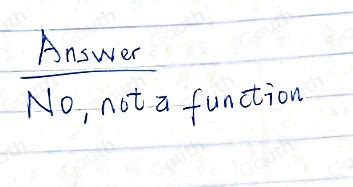 Answer
No, not a function